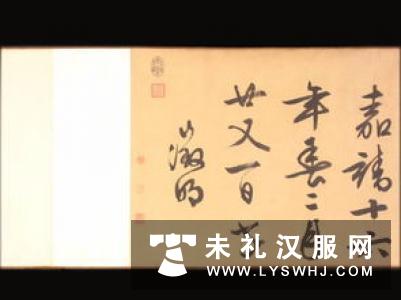 嘉靖十六
年春二月
廿又一日
徵明
未礼汉服网
WWW.LYSWHJ.COM